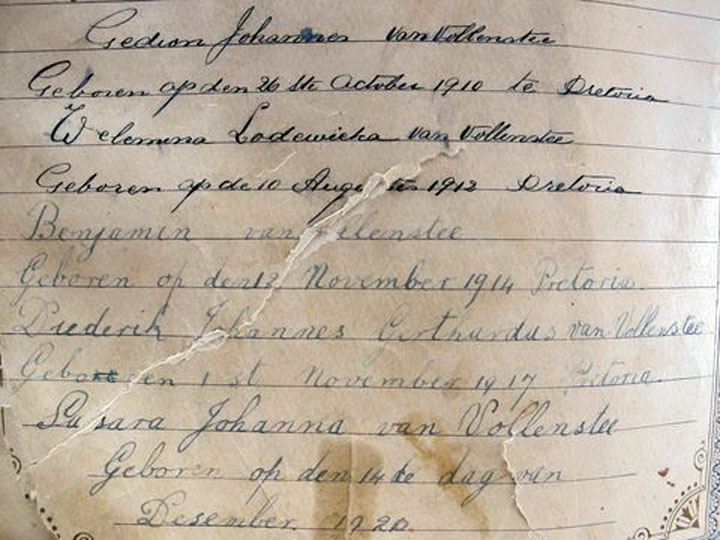 Gedion Johannes van Vollenstee
Geboren op den 26 ste October 1910 te Pretoria
Welemina Lodewicka van Vollenstee
Geboren op de 10 Augustes 1912 Pretoria
Benjamin van Vollenstee
Geboren op den 12 November 1914 Pretoria.
Diederik Johannes Gerthardus van Vollenstee
Geboren 1 st November 1917 Pretoria.
Susara Johanna van Vollenstee
Geboren op den 14 de dag van
Desember